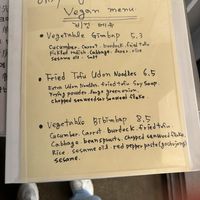 Vegan menu
비건 메뉴
• Vegetable Gimbap 5.3
Cucumber. Carrot. burdock. fried Tofu
Pickled radish. Cabbage. Rice
Sesame oil. Salt
• Fried Tofu Udon Noodles 6.5
Udon Noodles. fried tofu Soy Soup.
green onion.
chopped seaweed flake
• Vegetable Bibimbap 8.5
Cucumber. Carrot. burdock. fried tofu.
Cabbage. beansprouts. Chopped seaweed flake.
Rice. Sesame oil. red pepper paste (gochujang)
Sesame.